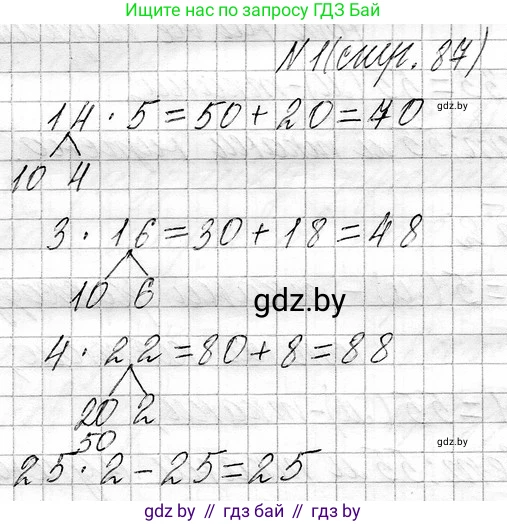 Ищите нас по запросу ГДЗ Бай
N1 (стр. 87)
gdz.by
14 · 5 = 50 + 20 = 70
10 4
3 · 16 = 30 + 18 = 48
10 6
gdz.by
4 · 22 = 80 + 8 = 88
20 2
gdz.by
50
25 · 2 - 25 = 25
gdz.by // гдз бай // gdz by